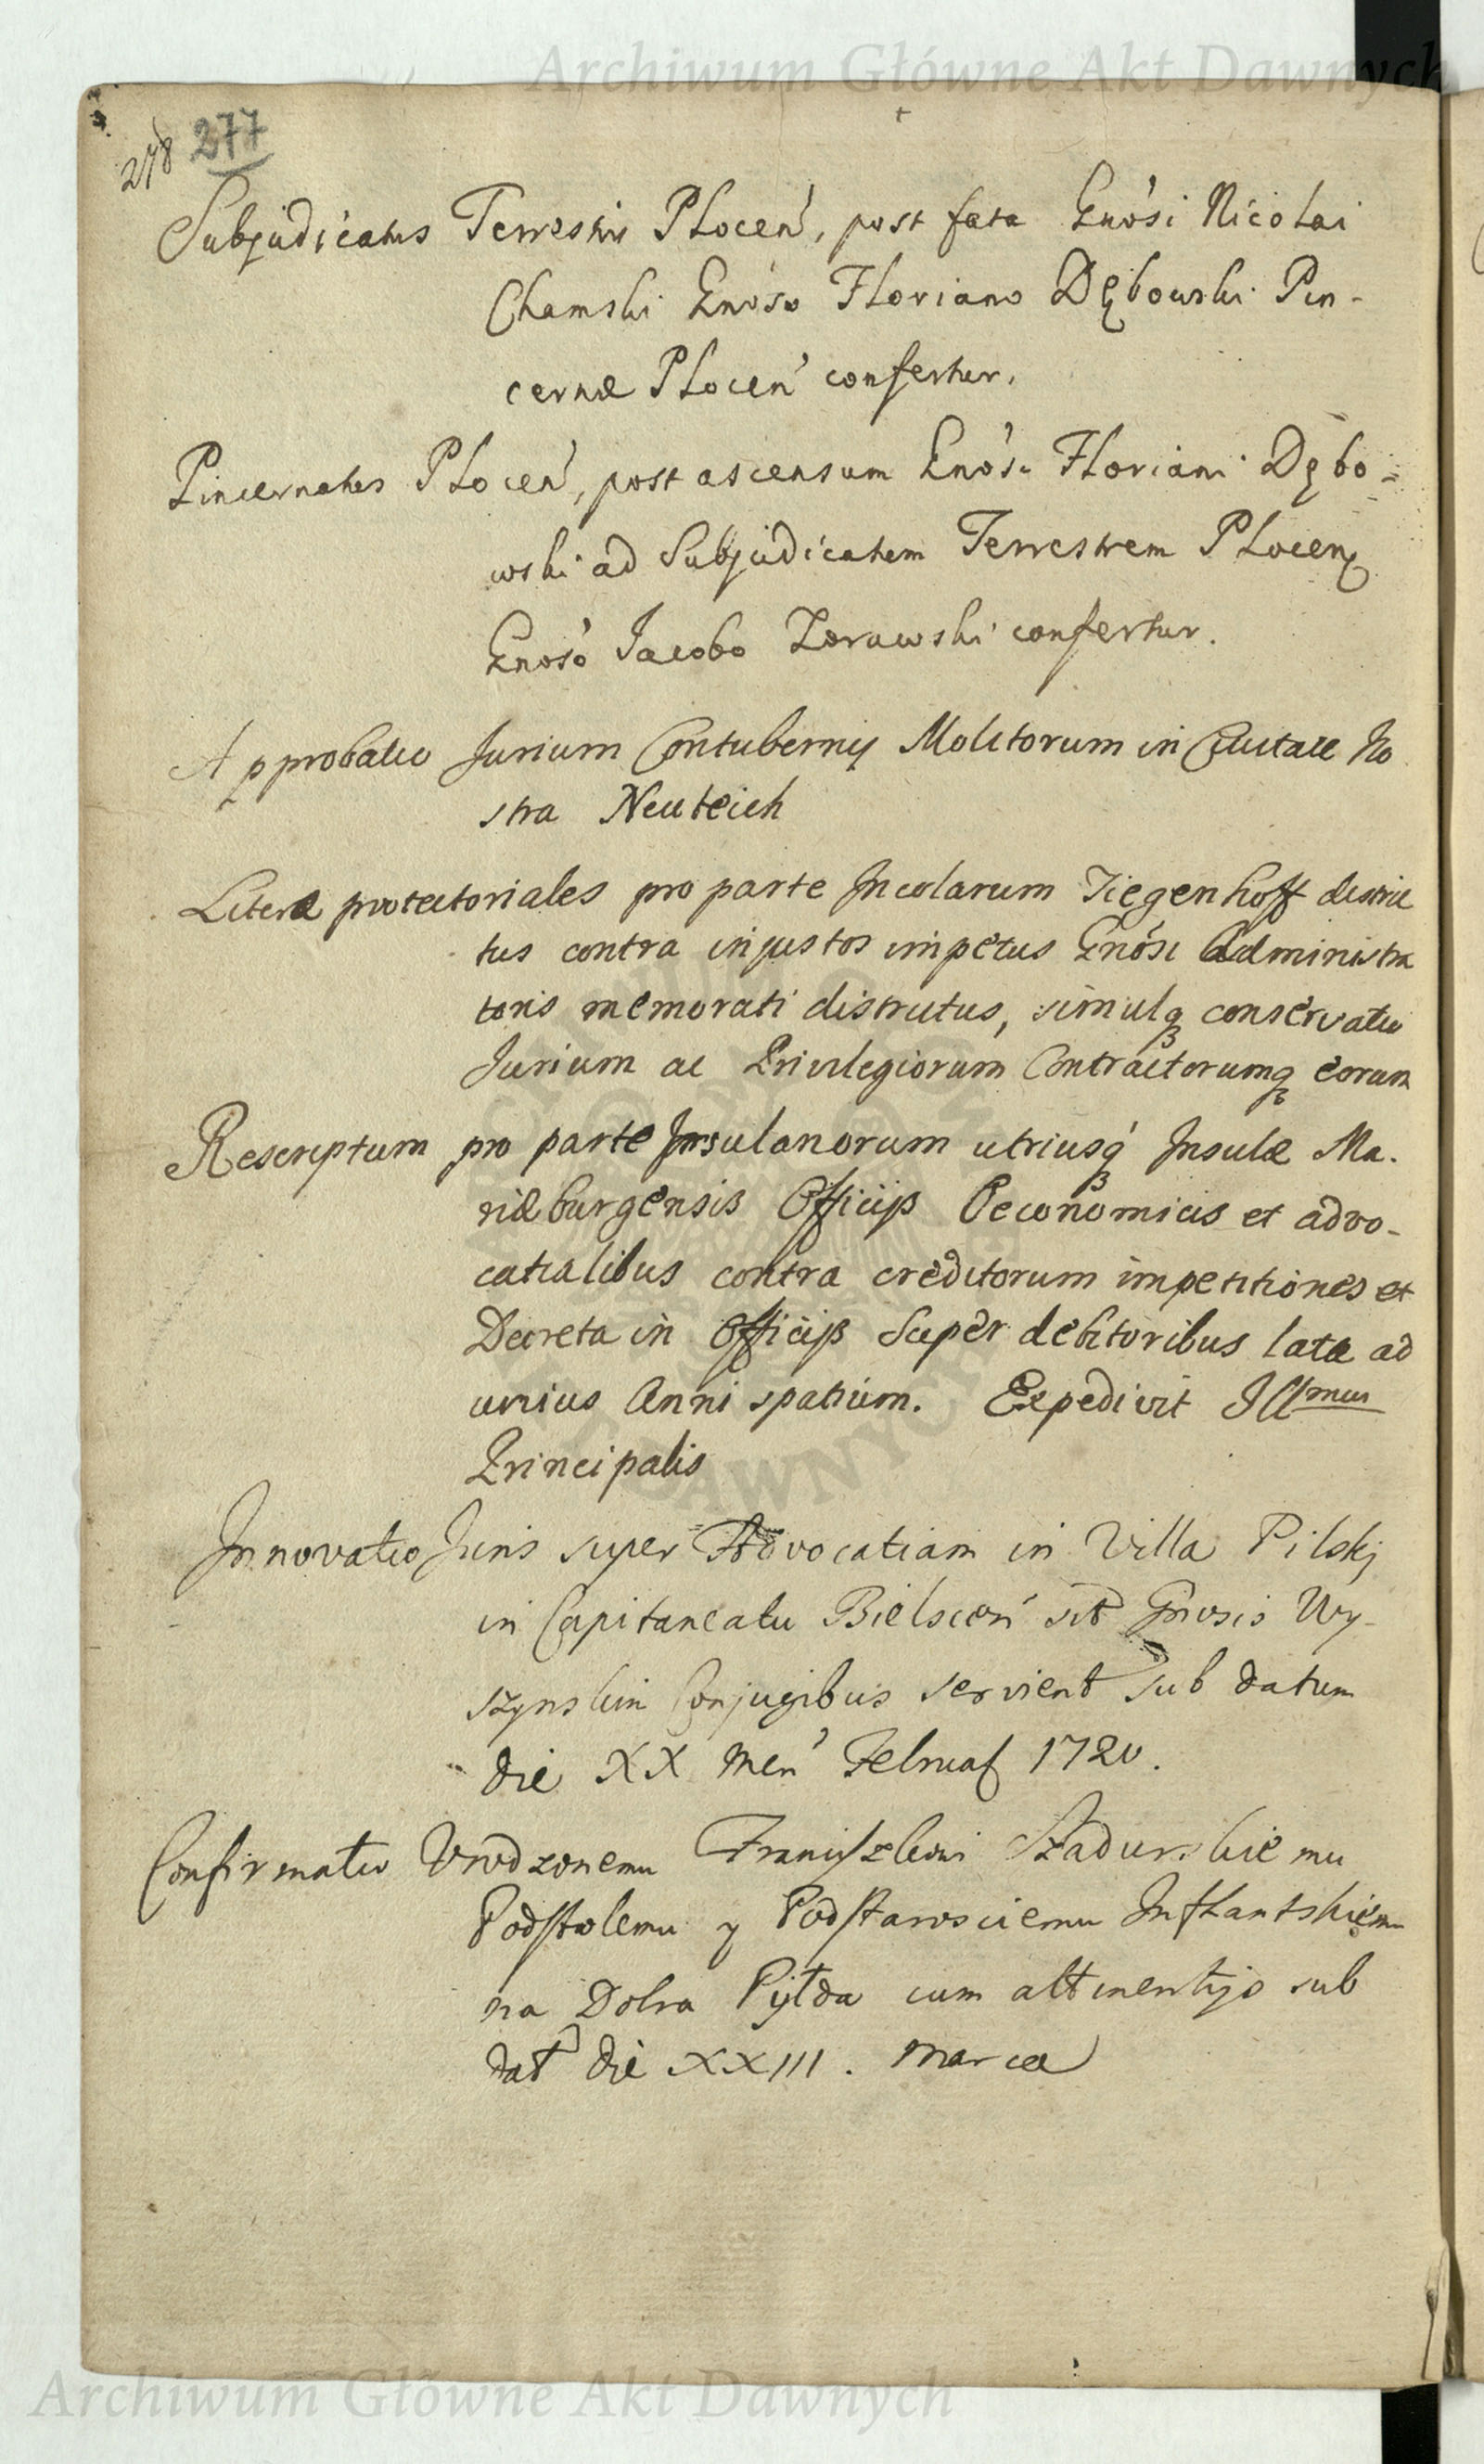 Archiwum Główne Akt Dawnych
278 277
Subjudicatus Terrestris Plocen̄, post fata Gnōsi Nicolai
Chamski Gnōso Floriano Dębowski Pin-
cernæ Plocen̄ confertur.
Pincernatus Plocen̄, post ascensum Gnōsi Floriani Dębo=
wski ad Subjudicatum Terrestrem Plocen̄
Gnōso Jacobo Zorawski confertur.
Approbatio Jurium Contubernij Molitorum in Civitate No
stra Neuteich
Literæ protectoriales pro parte Incolarum Tiegenhoff distric
tus contra injustos impetus Gnōsi Administra
toris memorati districtus, simulq conservatio
Jurium ac Privilegiorum Contractorumq eorum
Rescriptum pro parte Insulanorum utriusq Insulæ Ma-
riæburgensis Officijs Oeconomicis et advo-
catialibus contra creditorum impetitiones et
Decreta in Officijs super debitoribus lata ad
unius Anni spatium. Expedivit Illmus
Principalis
Innovatio Juris super Advocatiam in Villa Pilskj
in Capitaneatu Bielscen̄ Gnosis Wy-
szynskim Conjugibus servient sub datum
die XX Men̄ Februar 1720.
Confirmatio Urodzonemu Franciszkowi Szadurskiemu
Podstolemu y Podstarosciemu Inflantskiemu
na Dobra Pyłda cum attinentijs sub
dat die XXIII. Marca
Archiwum Główne Akt Dawnych